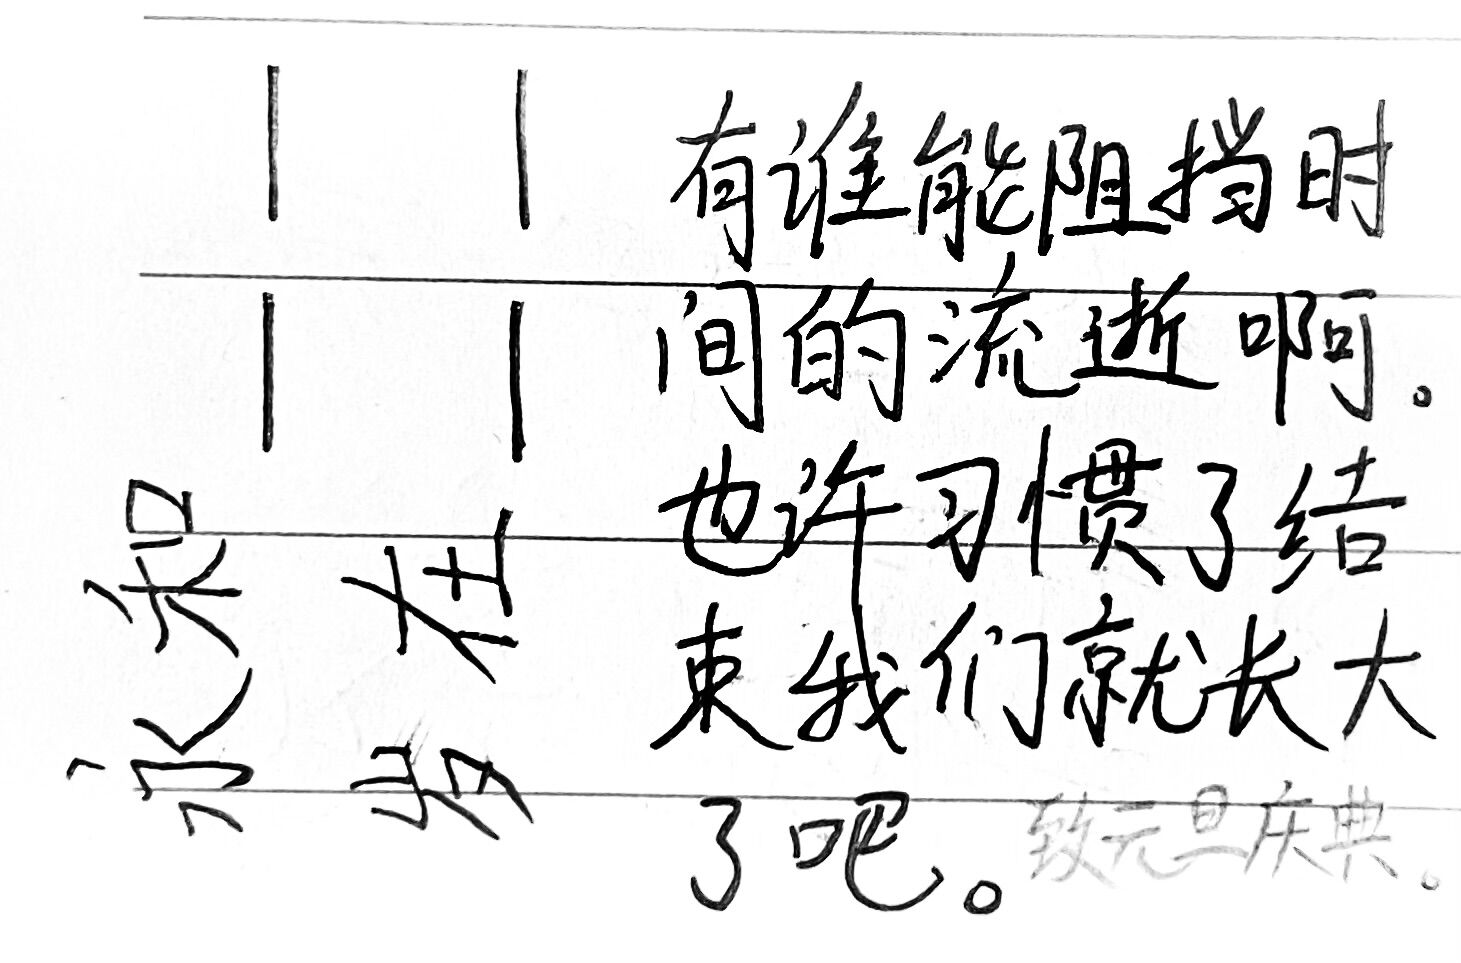 有谁能阻挡时
间的流逝啊。
也许习惯了结
束我们就长大
了吧。致元旦庆典。